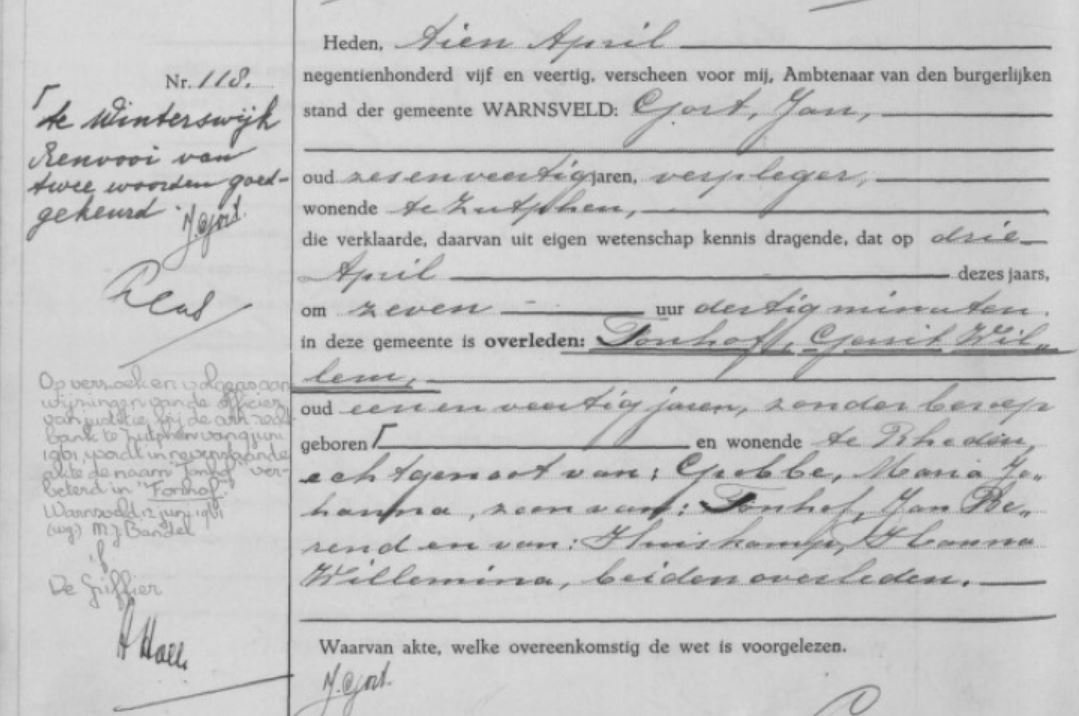 Nr. 118.
te Winterswijk
Renvooi van
twee woorden goed-
gekeurd.
J. Gort.
Op verzoek en volgens aan
wijzingen van de officier
van justitie bij de arr. recht
bank te Zutphen van 9 juni
1961 wordt in nevenstaande
akte de naam "Tonhof" ver-
beterd in "Fonhof."
Warnsveld 12 juni 1961
(wg) M.J. Bandel
De Griffier
Heden, tien April
negentienhonderd vijf en veertig, verscheen voor mij, Ambtenaar van den burgerlijken
stand der gemeente WARNSVELD: Gort, Jan,
oud zesenveertig jaren, verpleger,
wonende te Zutphen,
die verklaarde, daarvan uit eigen wetenschap kennis dragende, dat op drie
April dezes jaars,
om zeven uur dertig minuten.
in deze gemeente is overleden: Tonhof, Gerrit Wil-
lem,
oud eenenveertig jaren, zonder beroep
geboren en wonende te Rheden
echtgenoot van: Grobbe, Maria Jo-
hanna, zoon van: Tonhof, Jan Be-
rend en van: Thuiskamp, Hanna
Willemina, beiden overleden.
Waarvan akte, welke overeenkomstig de wet is voorgelezen.
J. Gort.